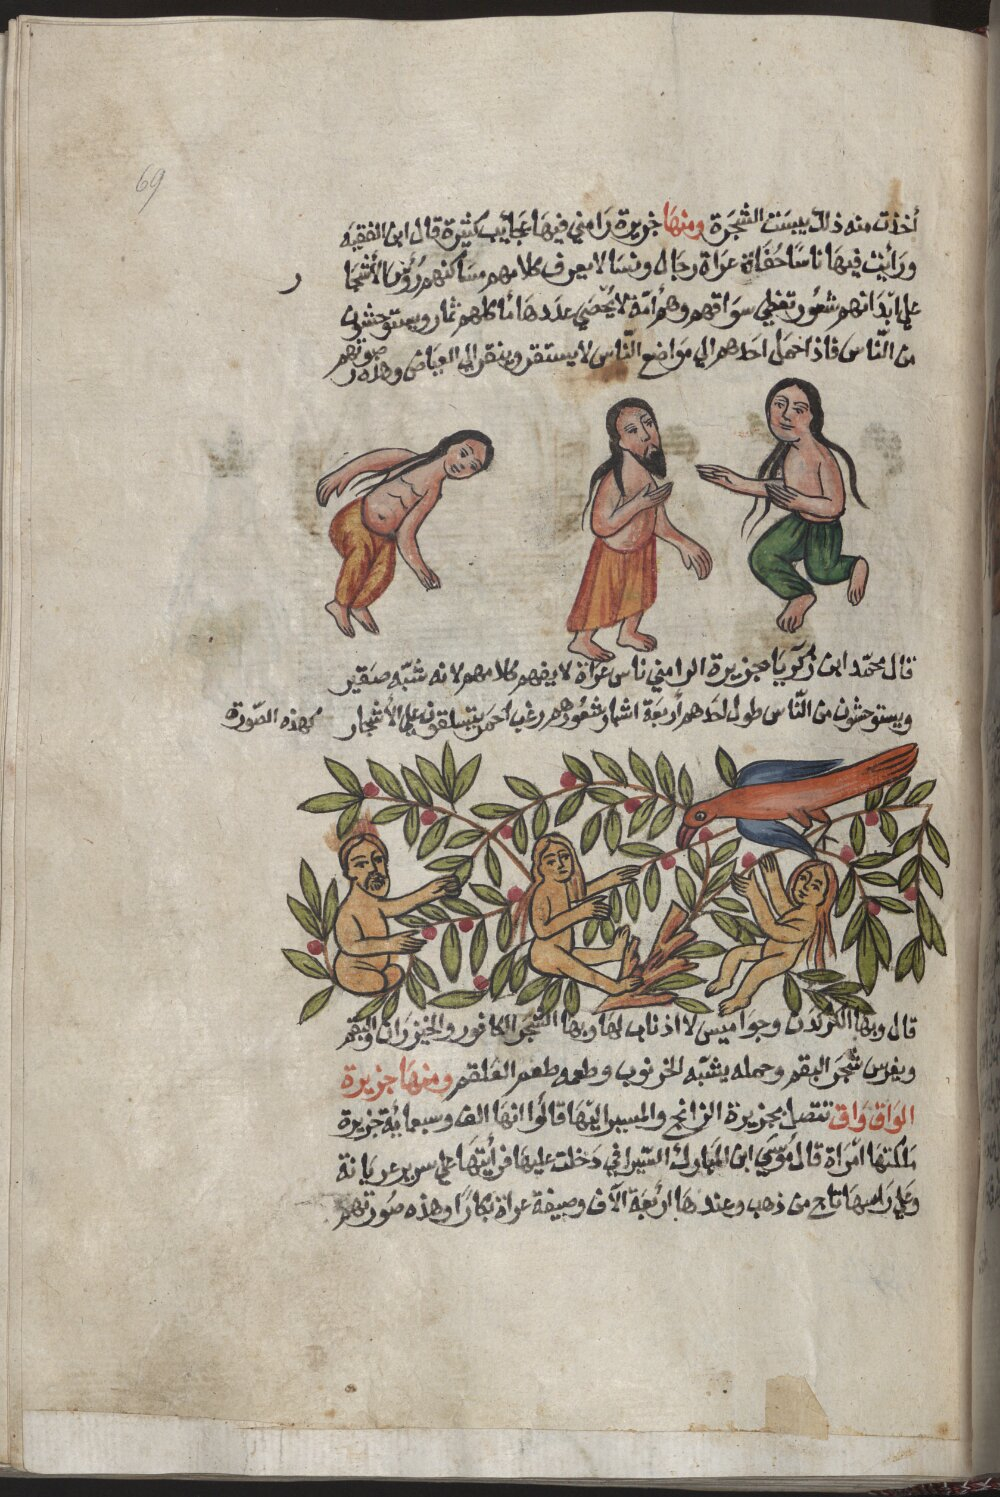 69
أخذت منه ذلك يبست الشجرة ومنها جزيرة رامني فيها عجايب كثيرة قال ابن الفقيه
ورأيت فيها ناسا حُفاة عراة رجال ونسا لا يعرف كلامهم مساكنهم رؤس الأشجا
ر
على ابدانهم شعور تغطي سواقهم وهم أمّة لا يُحصي عددها مأكلهم ثمار ويستوحشون
من النّاس فاذا حمل احدهم الي مواضع النّاس لا يستقر وينفر الي الغياض وهذه صورتهم
قال محمّد ابن زكريا بجزيرة الرامني ناس عراة لا يفهم كلامهم لانه شبّه صفير
ويستوحشون من النّاس طول احدهم أربعة اشبار شعورهم زغب أحمر يتسلقون علي الأشجار كهذه الصّورة
قال وبها الكركدن وجواميس لا اذناب لها وبها الشّجر الكافور والخيزران والبقم
ويغرس شجر البقم وحمله يشبّه الخرنوب وطعمه طعم العلقم ومنها جزيرة
الواق واق تتصل بجزيرة الزانج والمسير اليها قالوا انها الف وسبعمائة جزيرة
ملكتها امراة قال مُوسَي ابن المبارك السّيرافي دخلت عليها فرأيتها على سرير عريانة
وعلي راسها تاج من ذهب وعندها اربعة آلاف وصيفة عراة بكارًا وهذه صورتهم